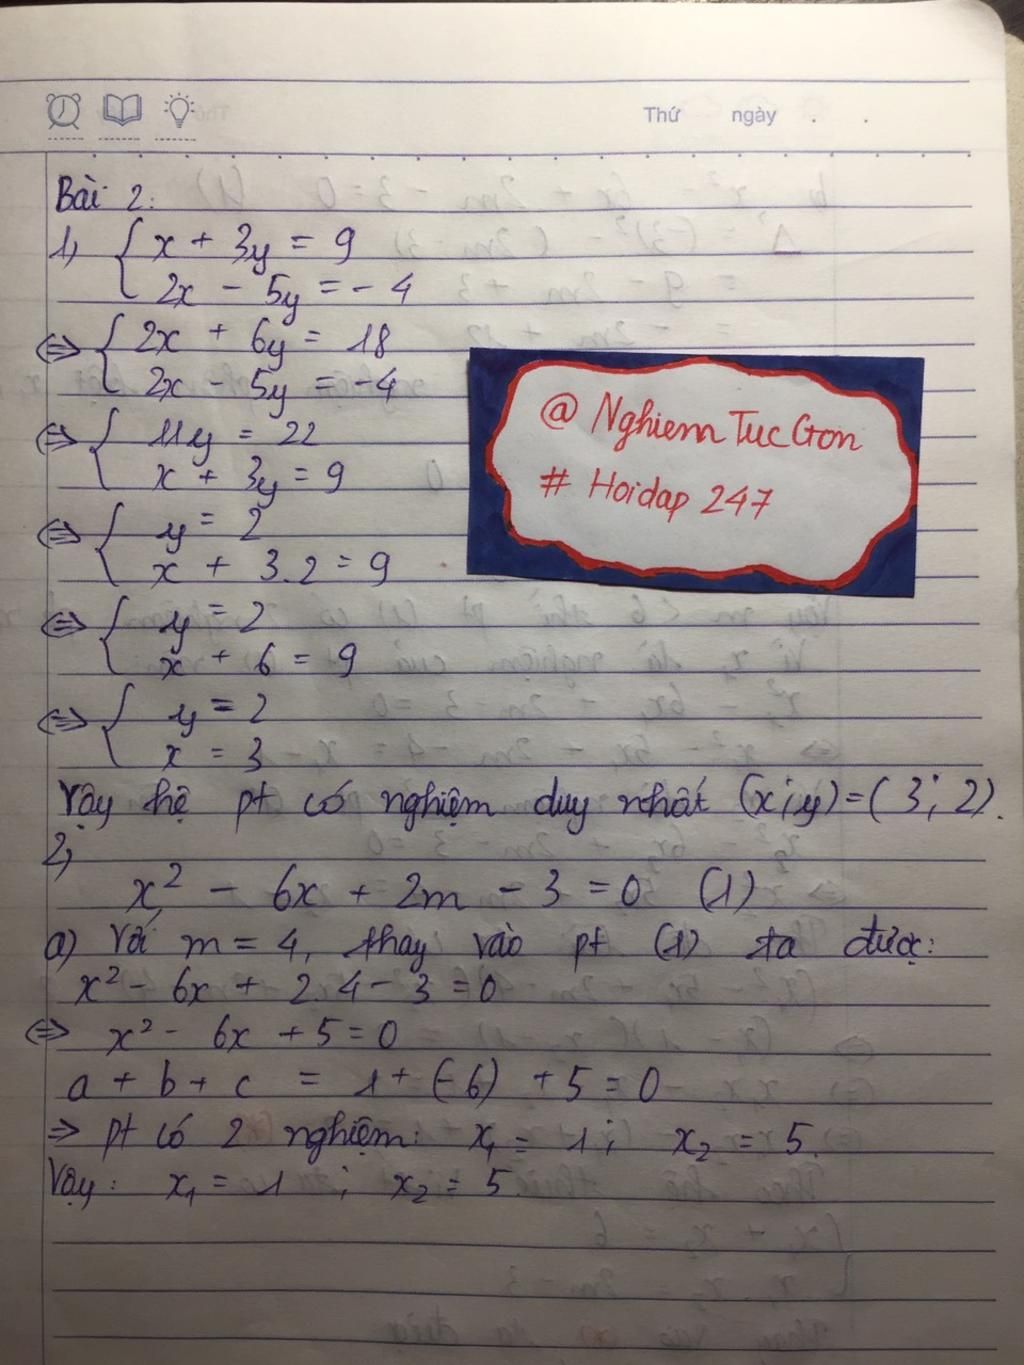 Thứ ngày . .
Bài 2:
1, { x + 3y = 9
2x - 5y = - 4
⇔ { 2x + 6y = 18
2x - 5y = -4
⇔ { 11y = 22
x + 3y = 9
⇔ { y = 2
x + 3.2 = 9
⇔ { y = 2
x + 6 = 9
⇔ { y = 2
x = 3
Vậy hệ pt có nghiệm duy nhất (x;y)=(3;2).
2,
x² - 6x + 2m - 3 = 0 (1)
a) Với m = 4, thay vào pt (1) ta được:
x² - 6x + 2.4 - 3 = 0
⇔ x² - 6x + 5 = 0
a + b + c = 1 + (-6) + 5 = 0
⇒ pt có 2 nghiệm: x₁ = 1; x₂ = 5.
Vậy: x₁ = 1 ; x₂ = 5
@ NghiemTucGon
# Hoidap 247